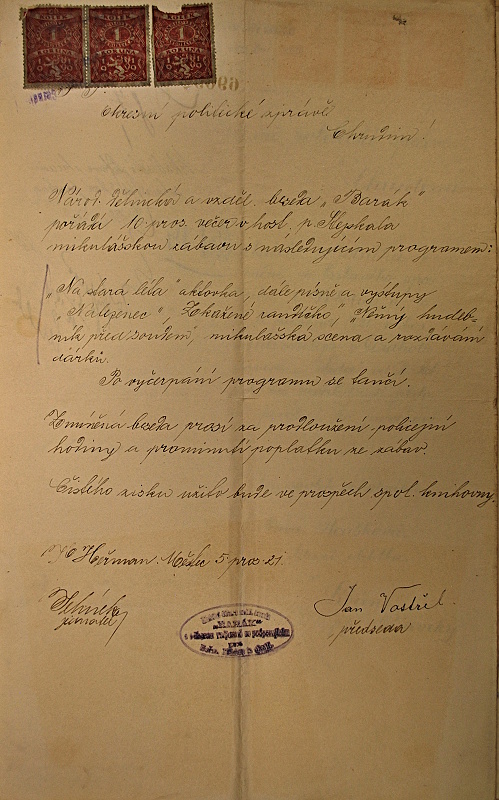 KOLEK KOLEK KOLEK
1 1 1
KORUNA KORUNA KORUNA
Okresní politické správě
Chrudim!
Národ. dělnická a vzděl. beseda „Barák"
pořádá 10. pros. večer v host. p. Stejskala
mikulášskou zábavu s následujícím programem:
„Na stará léta" aktovka, dále písně a výstupy
„Nalezenec", Zkažené randíčko", „Němý hudeb-
ník před soudem, mikulášská scena a rozdávání
dárků.
Po vyčerpání programu se tančí.
Zmíněná beseda prosí za prodloužení policejní
hodiny a prominutí poplatku ze zábav.
Čistého zisku užito bude ve prospěch spol. knihovny.
Heřman. Městec 5. pros. 21.
jednatel
Jan Vostřel
předseda
„BARÁK"